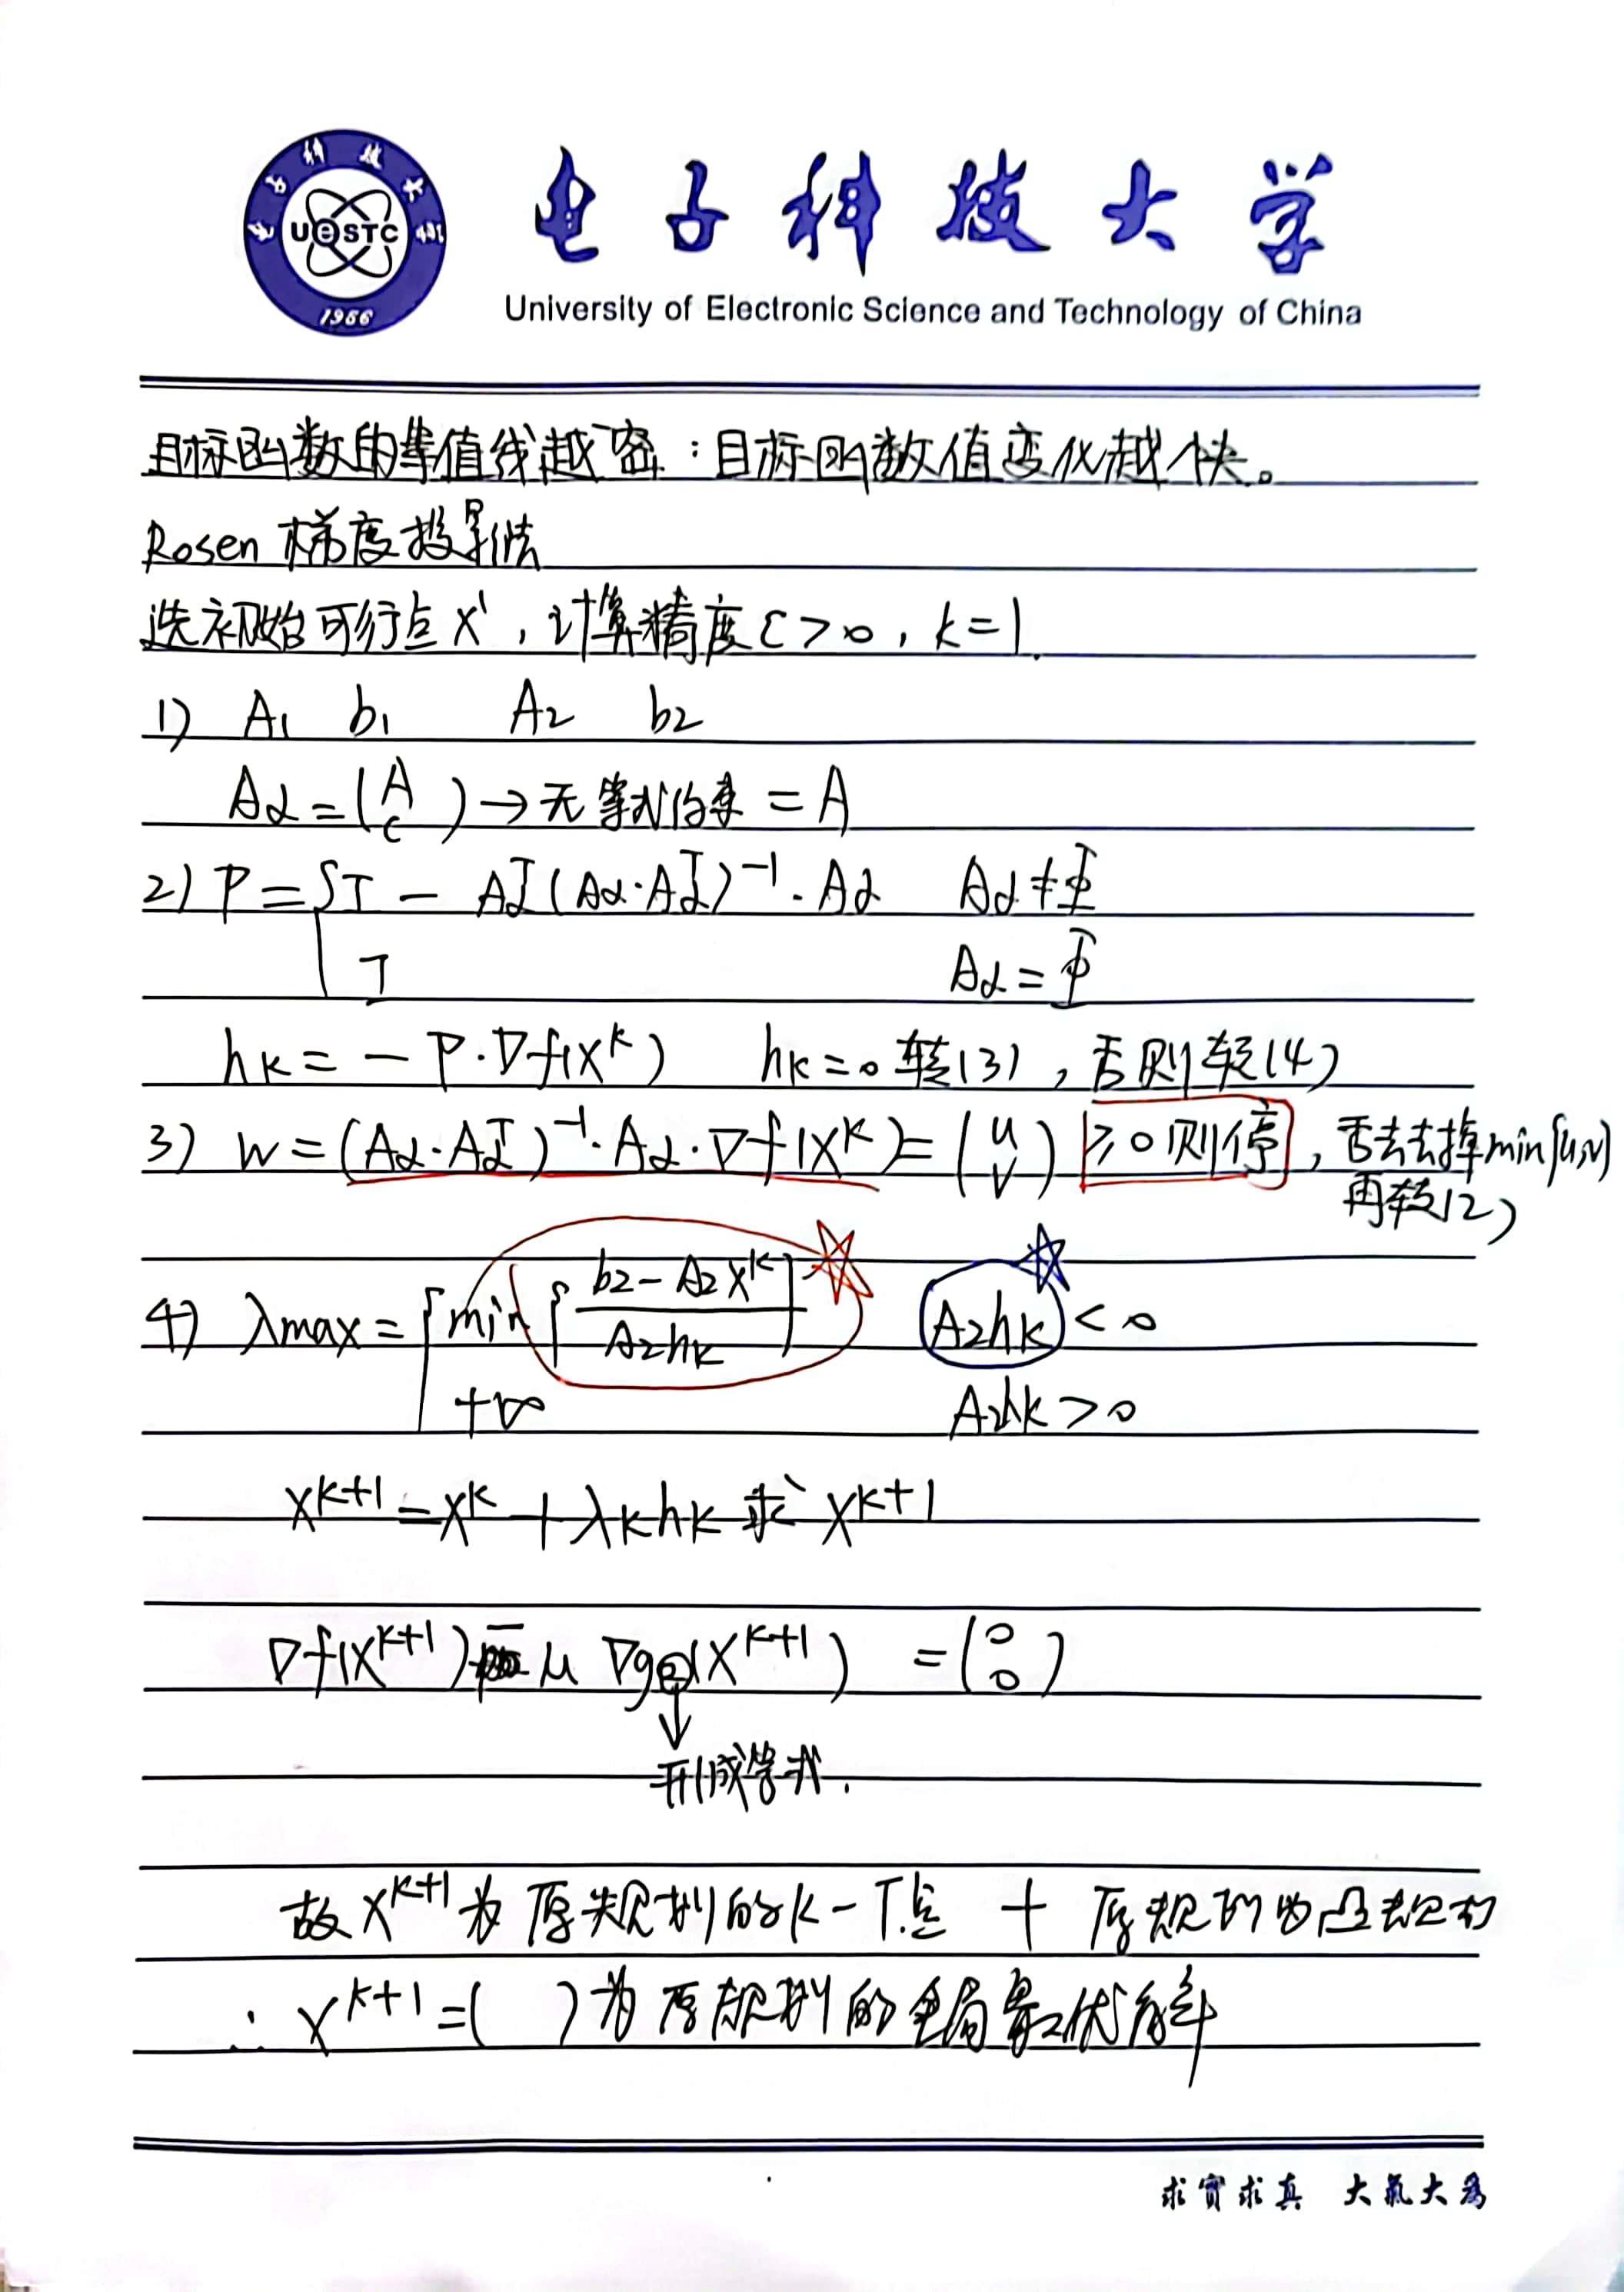 电子科技大学
University of Electronic Science and Technology of China
UeSTC
1956
目标函数的等值线越密：目标函数值变化越快。
Rosen 梯度投影法
选初始可行点 x¹，计算精度 ε > 0，k = 1.
1) A₁ b₁ A₂ b₂
Aα = (A C) → 无等式约束 = A
2) P = { I − Aαᵀ(Aα·Aαᵀ)⁻¹·Aα Aα ≠ Φ
I Aα = Φ
hk = − P·∇f(xᵏ) hk = 0 转(3)，否则转(4)
3) W = (Aα·Aαᵀ)⁻¹·Aα·∇f(xᵏ) = (u v) ≥0则停，否去去掉min{u,v}
再转(2)
4) λmax = { min { (b₂ − A₂xᵏ) / (A₂hk) } A₂hk < 0
+∞ A₂hk > 0
xᵏ⁺¹ = xᵏ + λkhk 求 xᵏ⁺¹
∇f(xᵏ⁺¹) − μ ∇g②(xᵏ⁺¹) = (0 0)
↓
形成等式.
故 xᵏ⁺¹ 为原规划的K-T点 + 原规划为凸规划
∴ xᵏ⁺¹ = ( ) 为原规划的全局最优解
求实求真 大气大为